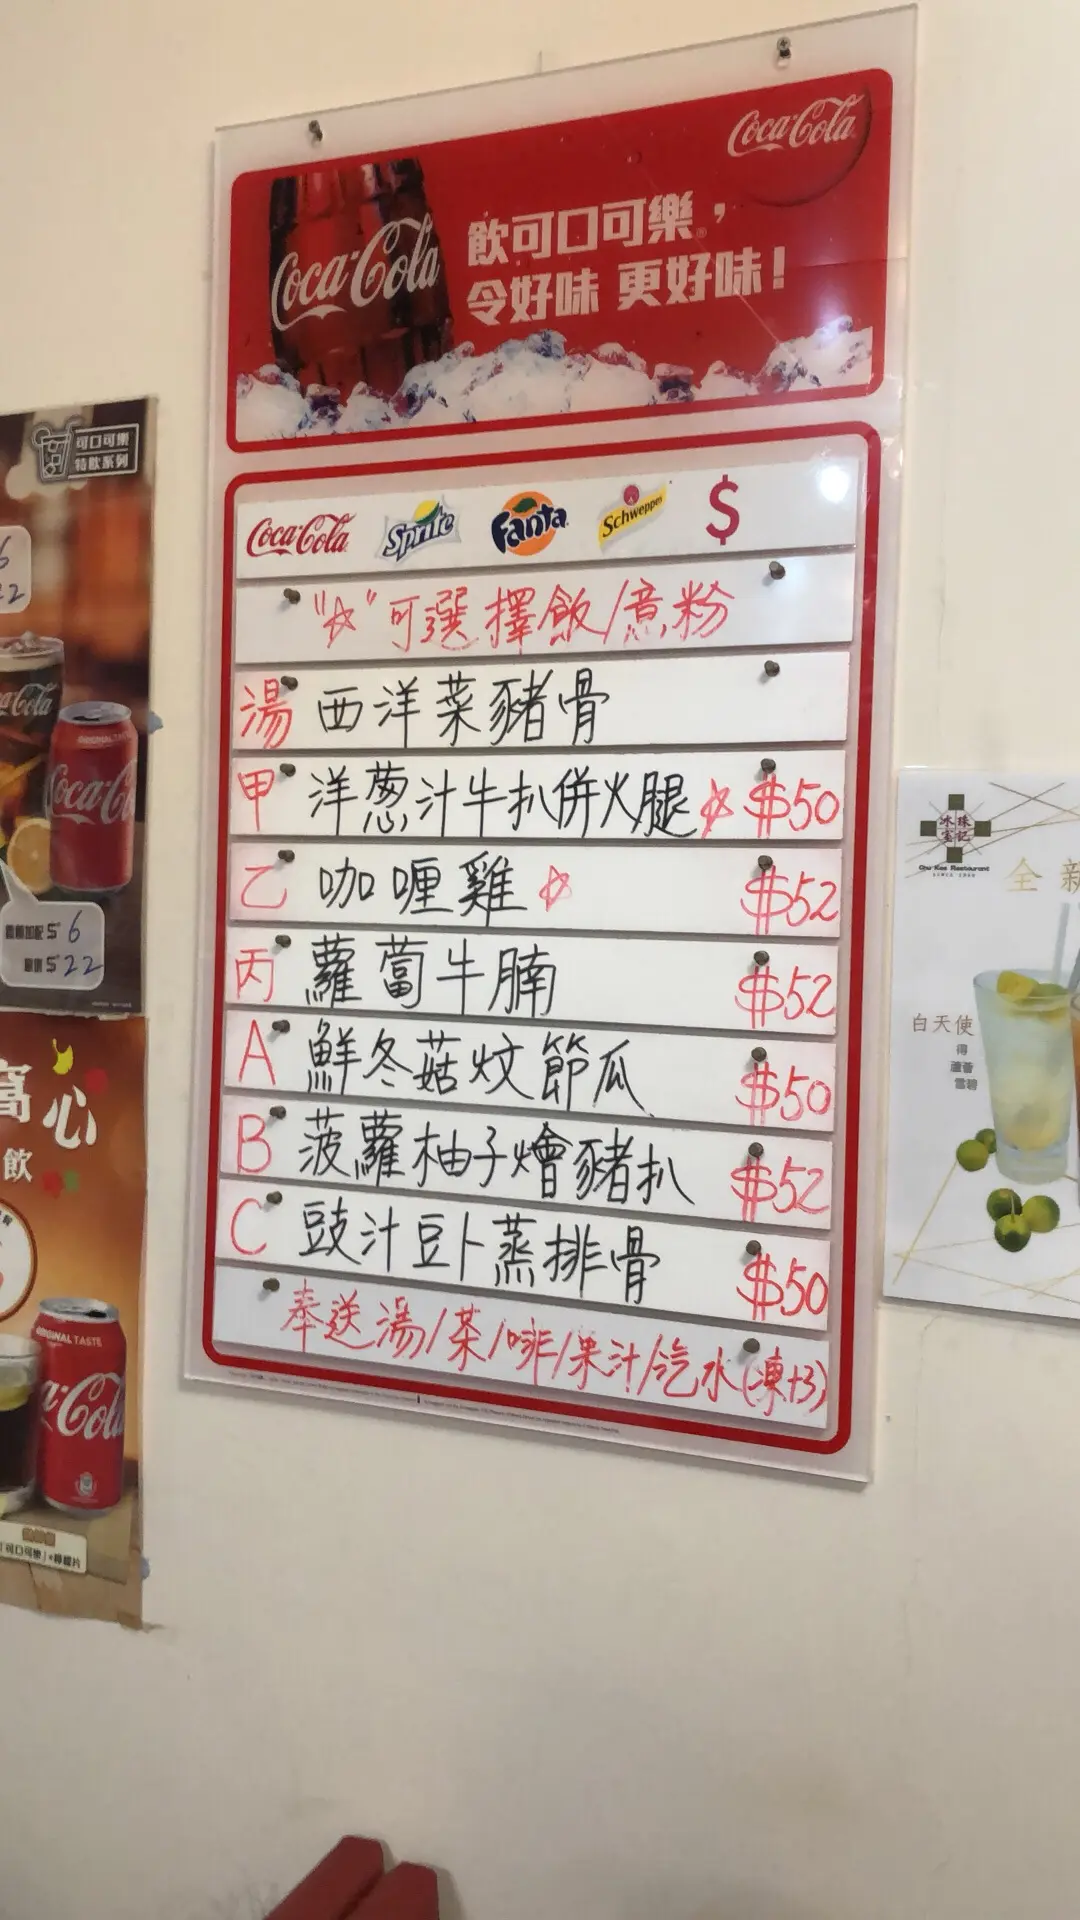 Coca-Cola
Coca-Cola
飲可口可樂，
令好味 更好味！
Coca-Cola Sprite Fanta Schweppes $
"☆"可選擇飯/意粉
湯 西洋菜豬骨
甲 洋葱汁牛扒併火腿☆ $50
乙 咖喱雞☆ $52
丙 蘿蔔牛腩 $52
A 鮮冬菇炆節瓜 $50
B 菠蘿柚子燴豬扒 $52
C 豉汁豆卜蒸排骨 $50
奉送湯/茶/啡/果汁/汽水(凍+3)
可口可樂
特飲系列
6
22
Coca-Cola
ORIGINAL TASTE
Coca-C
跟餐加配 $ 6
單購 $ 22
窩心
飲
ORIGINAL TASTE
Coca-Cola
「可口可樂」+檸檬片
冰室 珠記
Chu Kee Restaurant
全新
白天使
得
蘆薈
雪碧